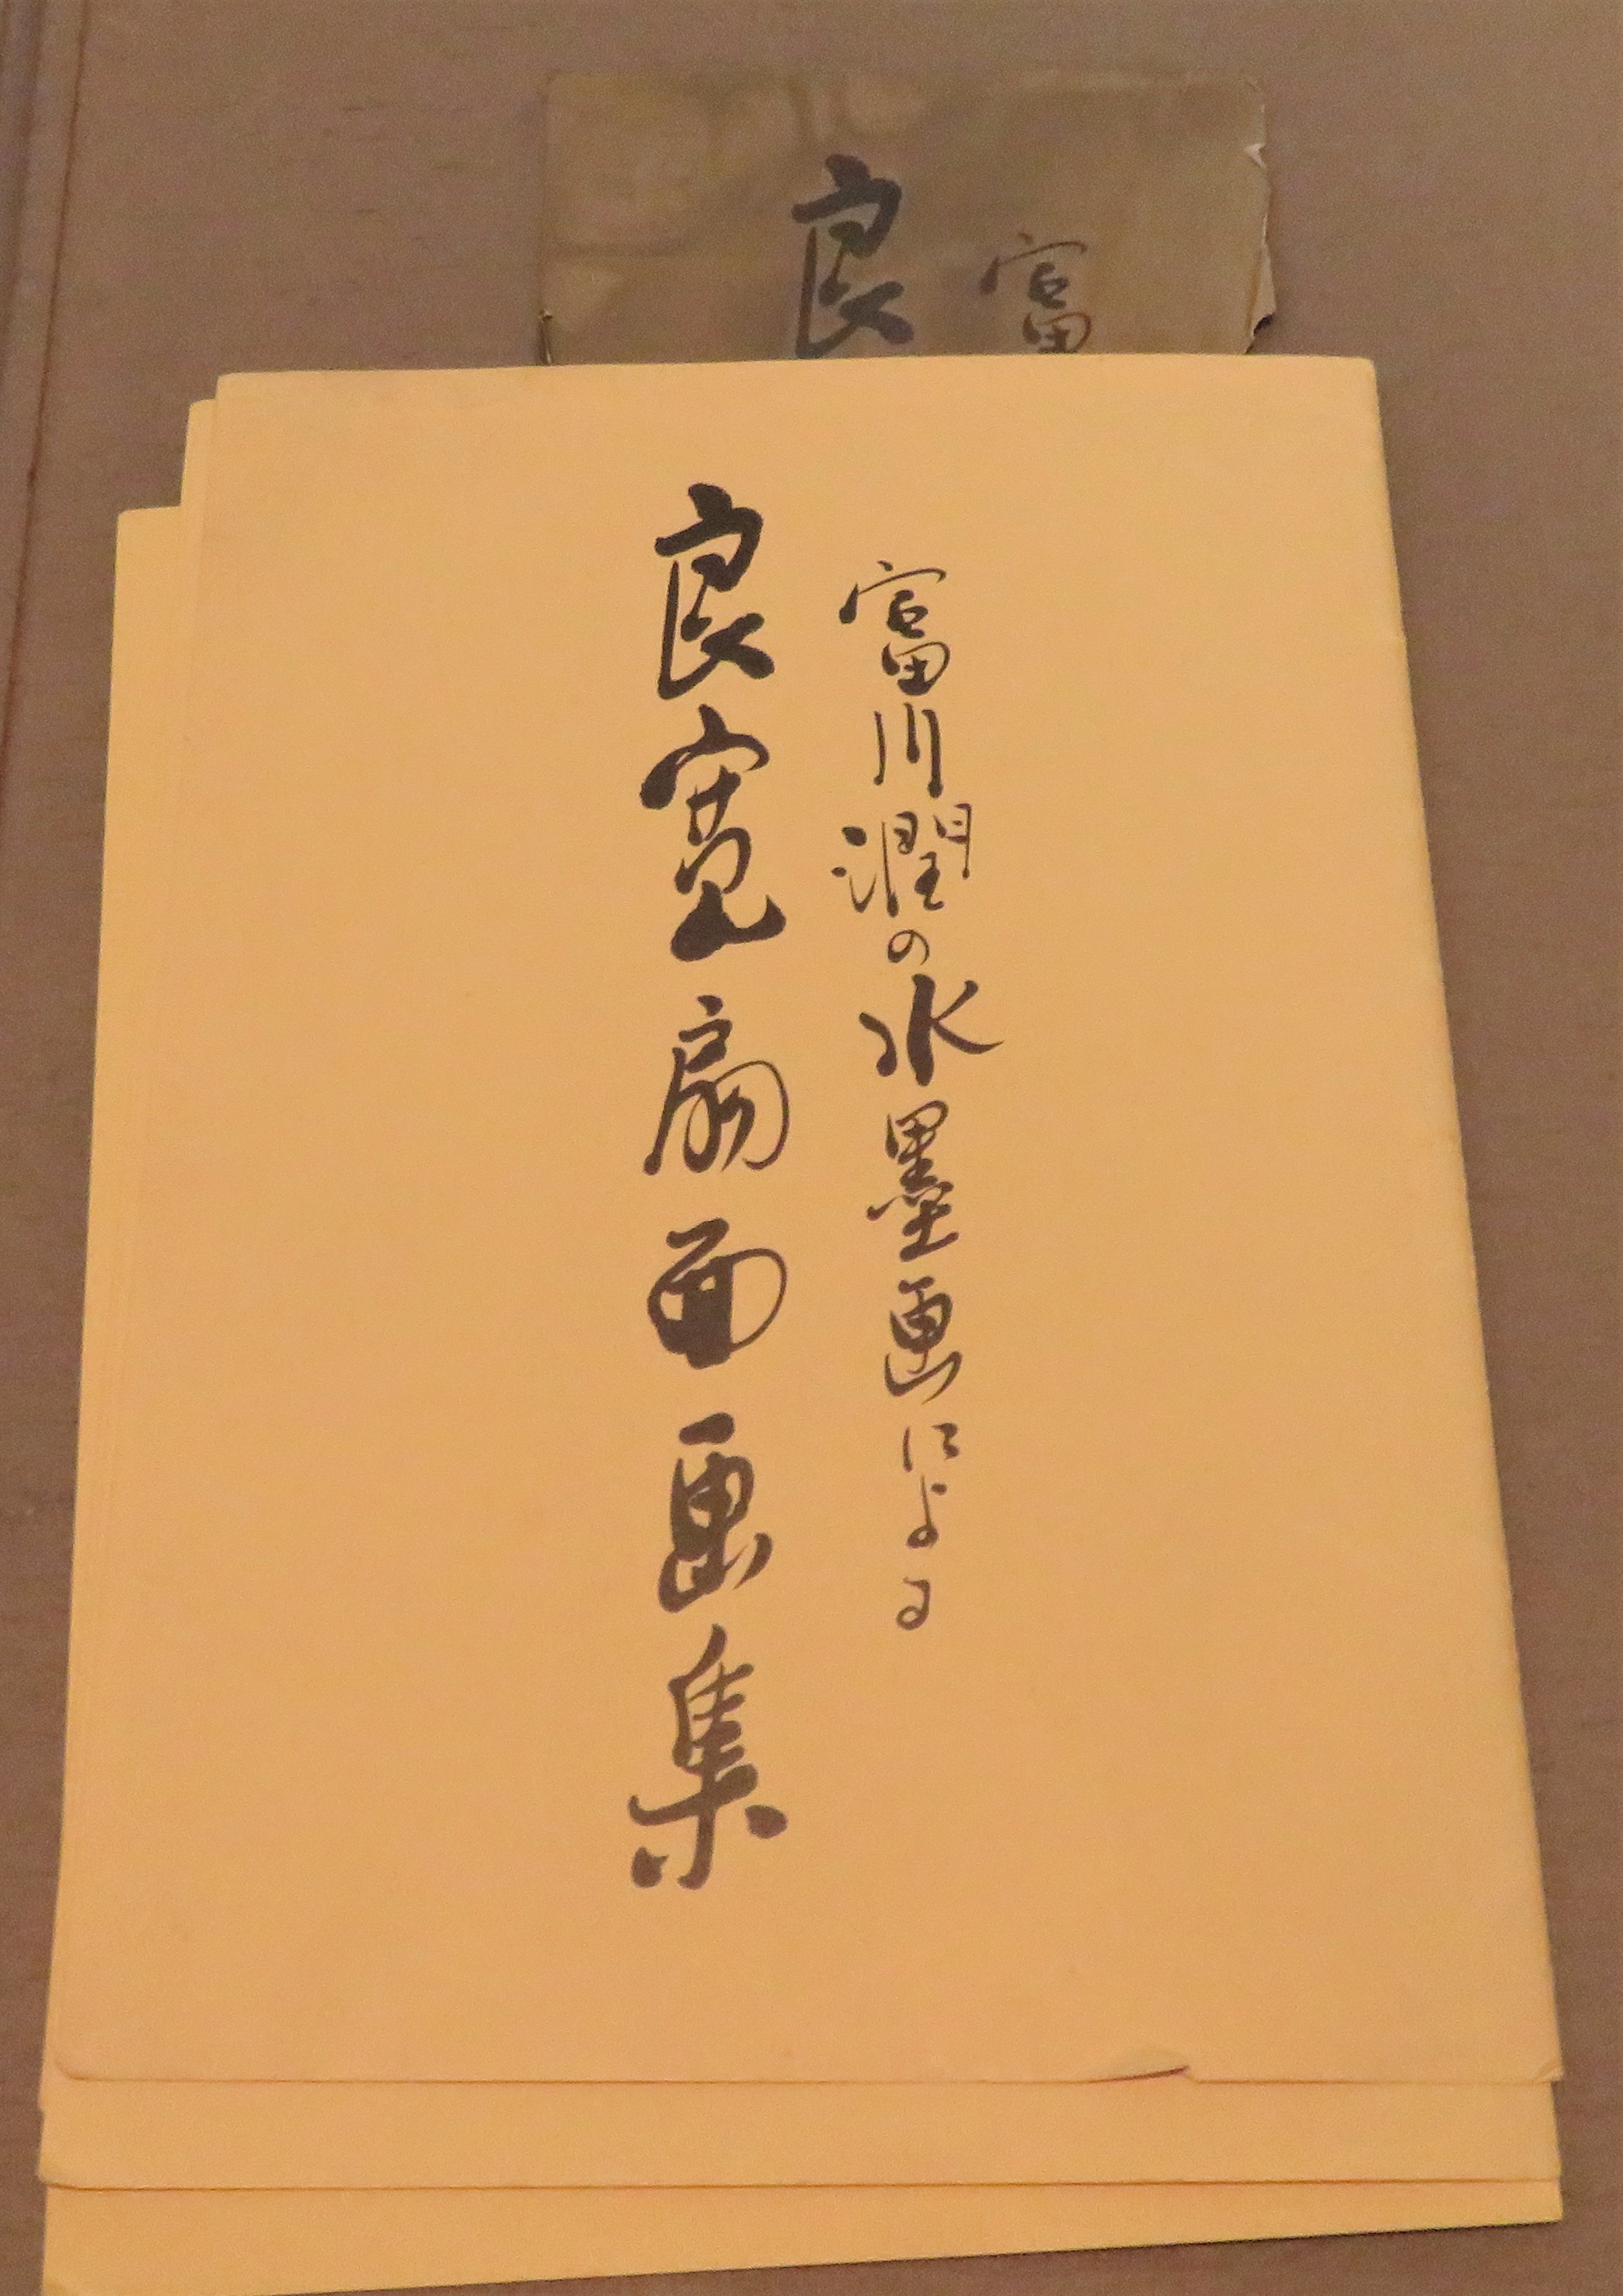 富
良
富川潤の水墨画による
良寛扇面画集